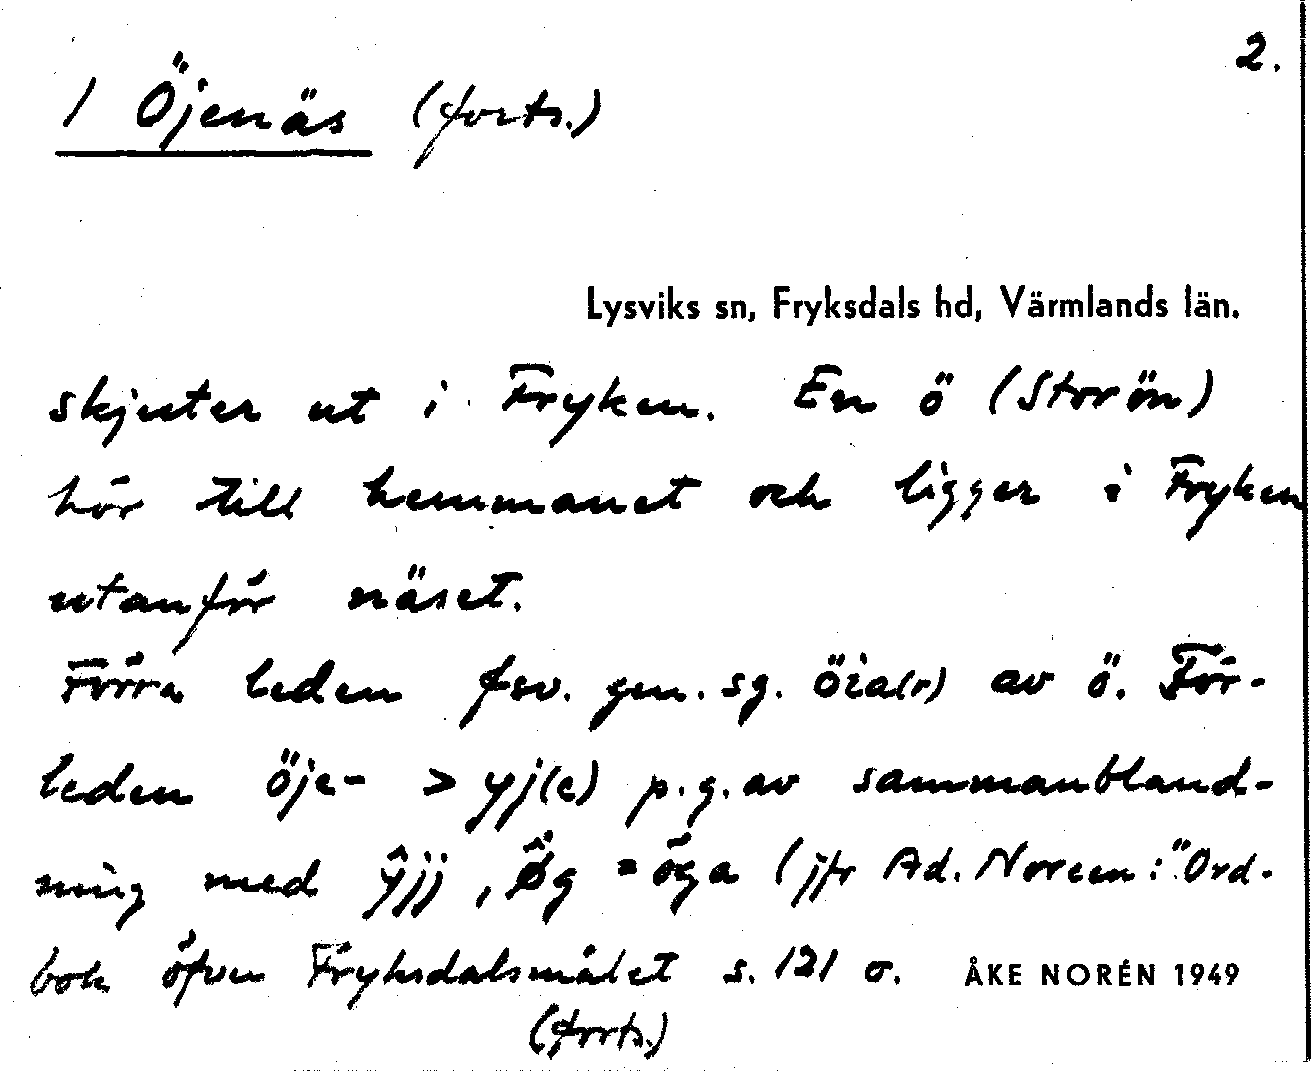 2.
1 Öjenäs (forts.)
Lysviks sn, Fryksdals hd, Värmlands län.
skjuter ut i Fryken. En ö (Storön)
hör till hemmanet och ligger i Fryken
utanför näset.
Förra leden fsv. gen. sg. öia(r) av ö. För-
leden öje- > yj(e) p.g.av sammanbland-
ning med ŷjj, Ø̂g = öga (jfr Ad. Noreen: "Ord-
bok öfver Fryksdalsmålet s. 121 o.
ÅKE NORÉN 1949
(forts.)